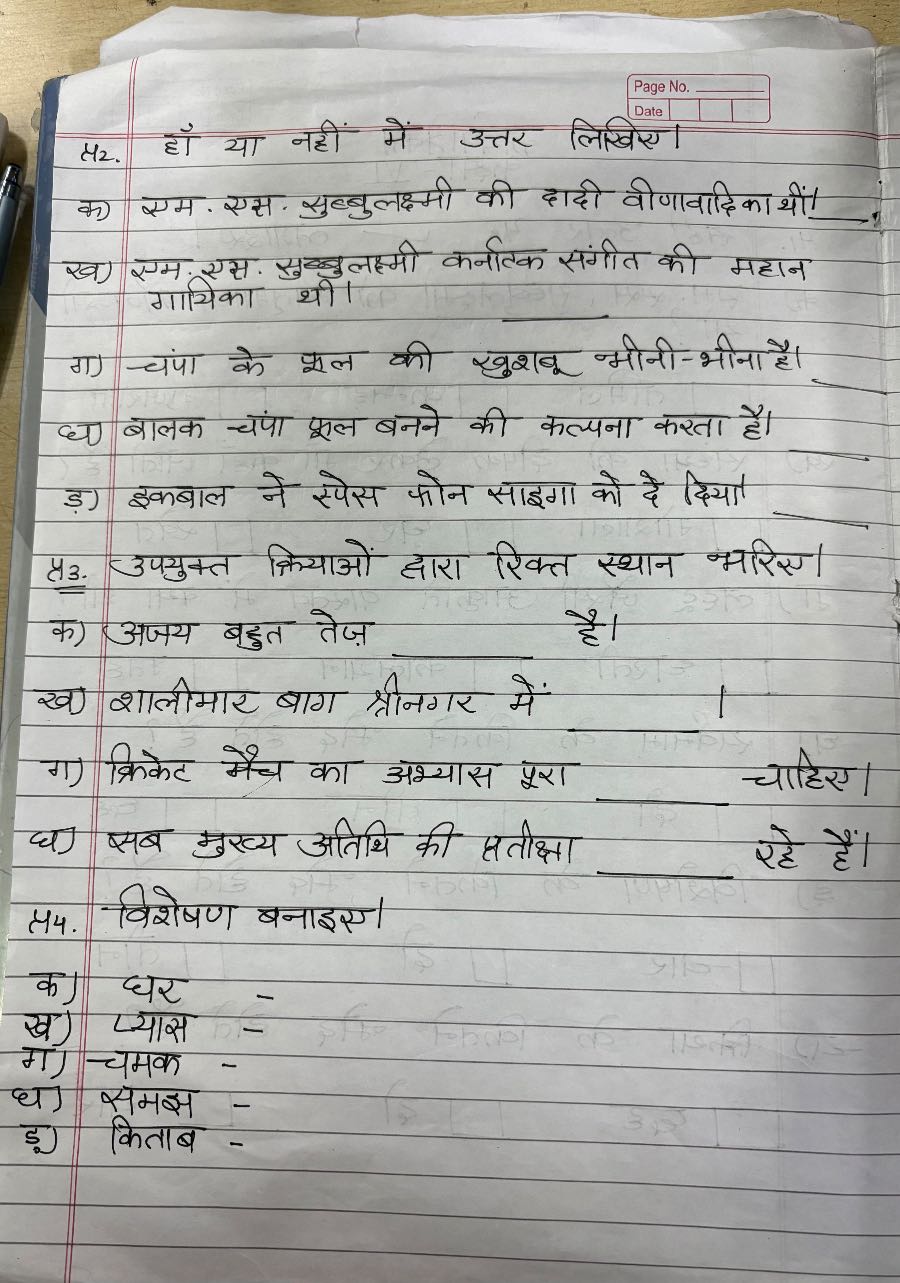 Page No.
Date
प्र2. हाँ या नहीं में उत्तर लिखिए।
क) एम. एस. सुब्बुलक्ष्मी की दादी वीणावादिका थीं।
ख) एम. एस. सुब्बुलक्ष्मी कर्नाटक संगीत की महान
गायिका थी।
ग) चंपा के फूल की खुशबू भीनी-भीना है।
घ) बालक चंपा फूल बनने की कल्पना करता है।
ड़) इकबाल ने स्पेस फोन साइगा को दे दिया।
प्र3. उपयुक्त क्रियाओं द्वारा रिक्त स्थान भरिए।
क) अजय बहुत तेज़ ______ है।
ख) शालीमार बाग श्रीनगर में ______ ।
ग) क्रिकेट मैच का अभ्यास पूरा ______ चाहिए।
घ) सब मुख्य अतिथि की प्रतीक्षा ______ रहे हैं।
प्र4. विशेषण बनाइए।
क) घर -
ख) प्यास -
ग) चमक -
घ) समझ -
ड़) किताब -